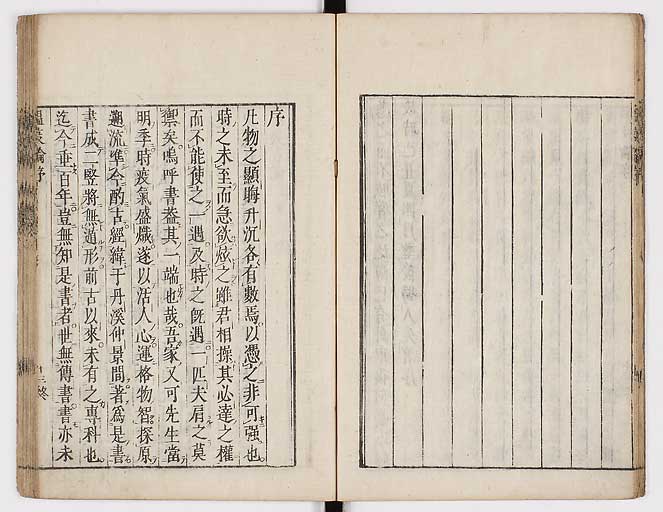 序
凡物之顯晦升沉各有數焉以憑之非可强也
時之未至而急欲炫之雖君相操其必達之權
而不能使之一遇及時之旣遇一匹夫肩之莫
禦矣嗚呼書葢其一端也哉吾家又可先生當
明季時疫氣盛熾遂以活人心運格物智探原
遡流準今酌古經緯于丹溪仲景間著爲是書
書成二竪將無遁形前古以來未有之專科也
迄今垂百年豈無知是書者世無傳書書亦未
論序
十三終